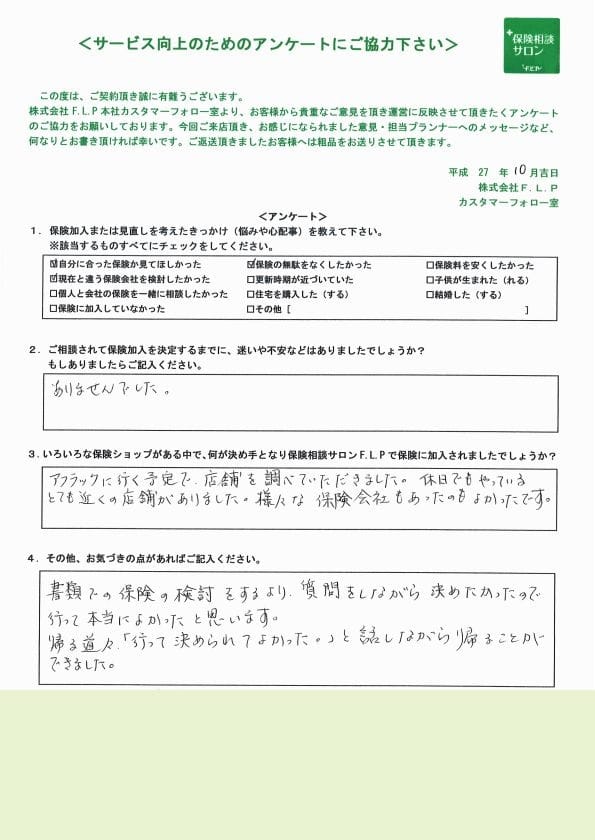 ＜サービス向上のためのアンケートにご協力下さい＞
保険相談
サロン
F.L.P
この度は、ご契約頂き誠に有難うございます。
株式会社F.L.P本社カスタマーフォロー室より、お客様から貴重なご意見を頂き運営に反映させて頂きたくアンケート
のご協力をお願いしております。今回ご来店頂き、お感じになられました意見・担当プランナーへのメッセージなど、
何なりとお書き頂ければ幸いです。ご返送頂きましたお客様へは粗品をお送りさせて頂きます。
平成 27 年 10 月吉日
株式会社F.L.P
カスタマーフォロー室
＜アンケート＞
1．保険加入または見直しを考えたきっかけ（悩みや心配事）を教えて下さい。
※該当するものすべてにチェックをしてください。
☑自分に合った保険か見てほしかった ☑保険の無駄をなくしたかった □保険料を安くしたかった
☑現在と違う保険会社を検討したかった □更新時期が近づいていた □子供が生まれた（れる）
□個人と会社の保険を一緒に相談したかった □住宅を購入した（する） □結婚した（する）
□保険に加入していなかった □その他［ ］
2．ご相談されて保険加入を決定するまでに、迷いや不安などはありましたでしょうか？
もしありましたらご記入ください。
ありませんでした。
3．いろいろな保険ショップがある中で、何が決め手となり保険相談サロンF.L.Pで保険に加入されましたでしょうか？
アフラックに行く予定で、店舗を調べていただきました。休日でもやっている
とても近くの店舗がありました。様々な保険会社もあったのもよかったです。
4．その他、お気づきの点があればご記入ください。
書類での保険の検討をするより、質問をしながら決めたかったので
行って本当によかったと思います。
帰る道々、「行って決められてよかった。」と話しながら帰ることが
できました。